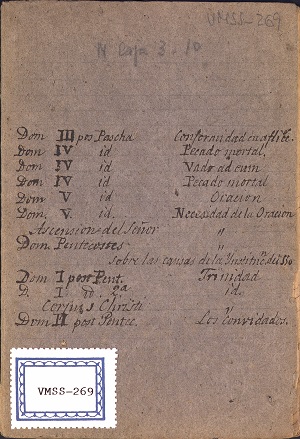 VMSS-269
N Caja 3.10
Dom III pos Pascha Conformidad en aflicc.
Dom IV id Pecado mortal,
Dom IV id. Vado ad eum
Dom IV id. Pecado mortal
Dom V id. Oracion
Dom. V. id. Necesidad de la Oracion
Ascension del Señor "
Dom. Pentecostes "
Sobre las causas de la
Dom I post Pent. Trinidad
D. I id. 2a id.
Corpus Christi "
Dom II post Pentec. Los Convidados.
VMSS-269